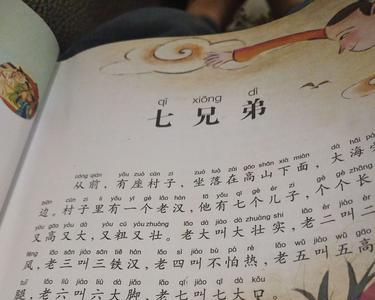 qī xiōng dì
七兄弟
cóng qián yǒu zuò cūn zi zuò luò zài gāo shān xià miàn dà hǎi
从前,有座村子,坐落在高山下面,大海
biān cūn zi li yǒu yí gè lǎo hàn tā yǒu qī gè ér zi gè gè
边。村子里有一个老汉,他有七个儿子,个个长
yòu gāo yòu dà yòu cū yòu zhuàng lǎo dà jiào dà zhuàng shi lǎo èr jiào èr
又高又大,又粗又壮。老大叫大壮实,老二叫二
fēng lǎo sān jiào sān tiě hàn lǎo sì jiào bú pà rè lǎo wǔ jiào wǔ gāo
风,老三叫三铁汉,老四叫不怕热,老五叫五高
lǎo liù jiào liù dà jiǎo lǎo qī jiào qī dà kǒu
腿,老六叫六大脚,老七叫七大口。